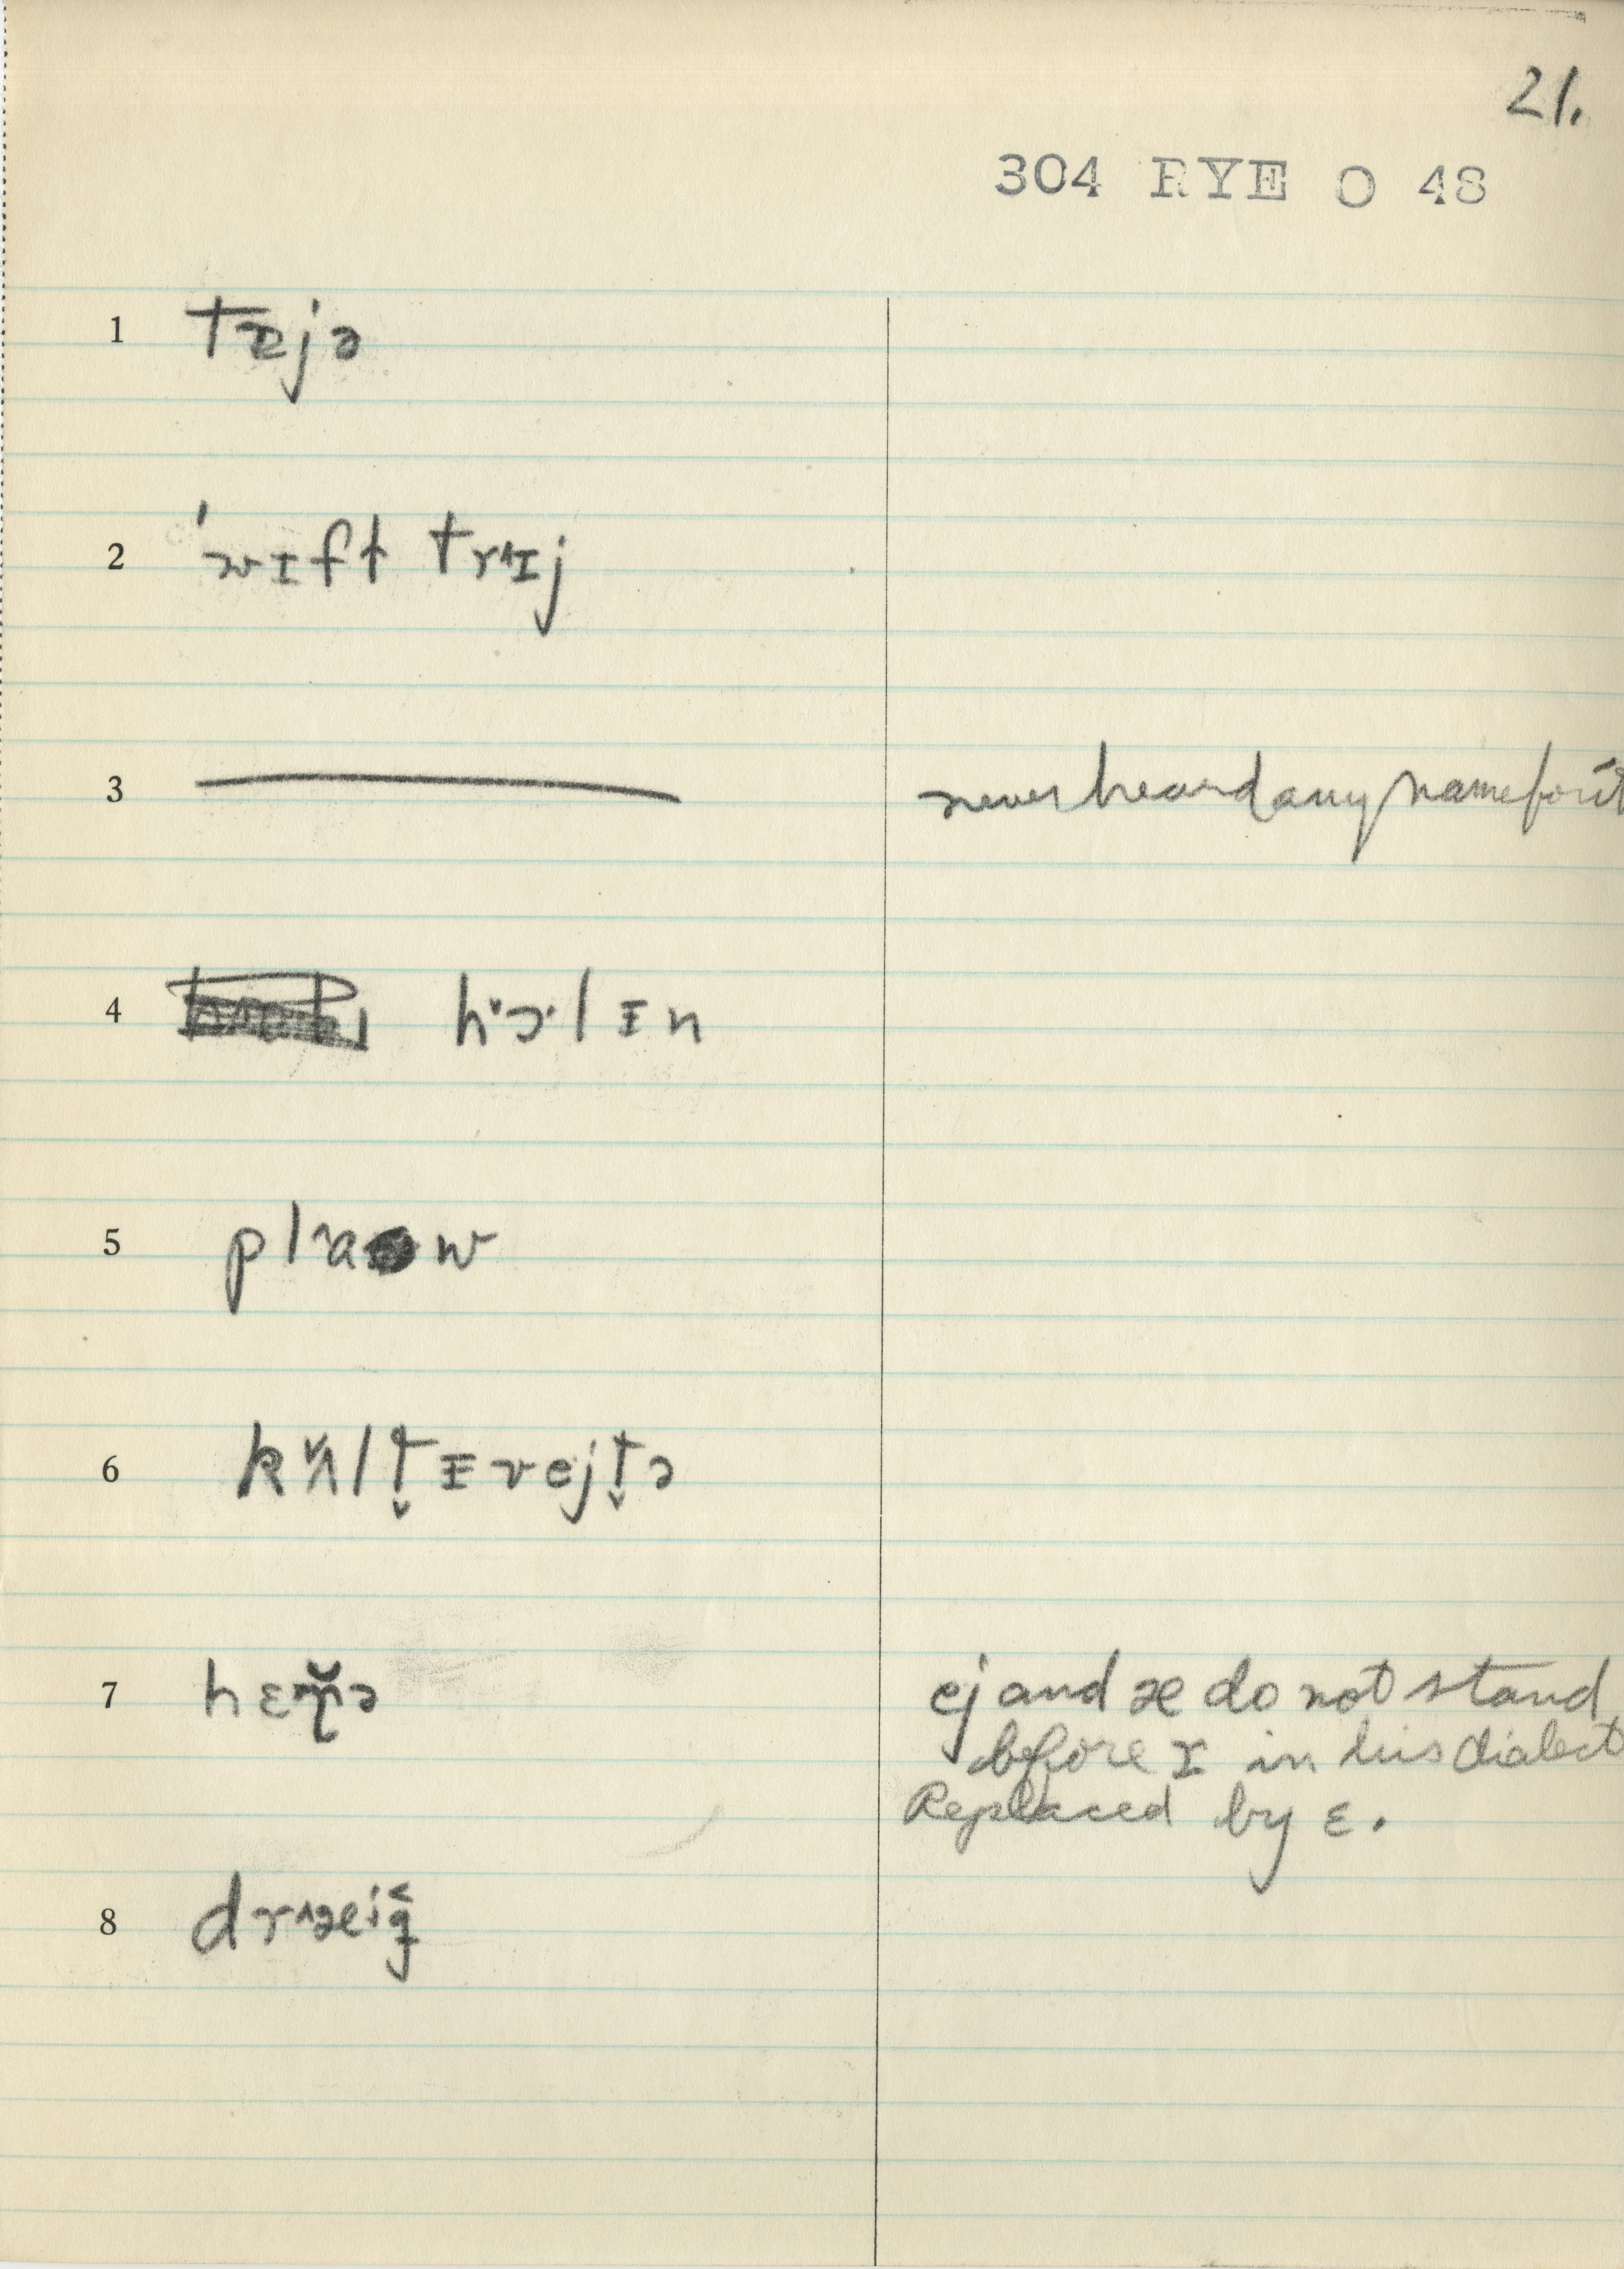 21.
304 RYE O 48
1 tæjə
2 'wɪft trɪj
3 never heard any name for it
4 hɔ·lɪn
5 plaw
6 kʌltɪvejtə
7 hɛrə
ej and æ do not stand
before r in his dialect
Replaced by ɛ.
8 dræig